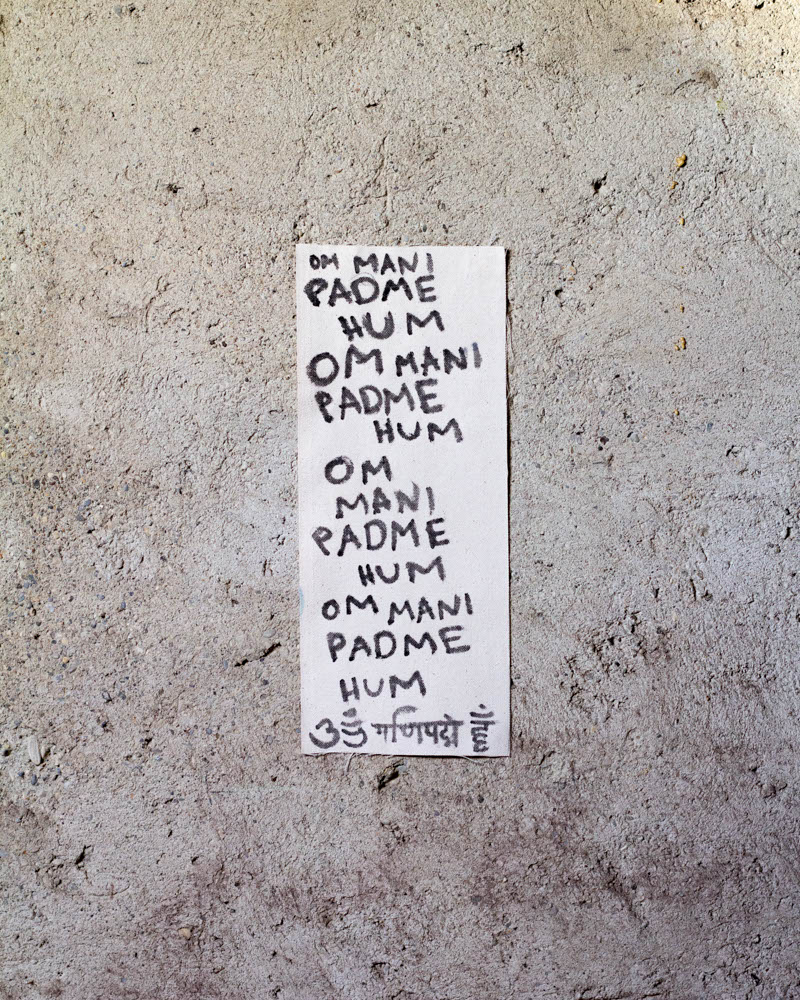 OM MANI
PADME
HUM
OM MANI
PADME
HUM
OM
MANI
PADME
HUM
OM MANI
PADME
HUM
ॐ मणिपद्मे हूँ